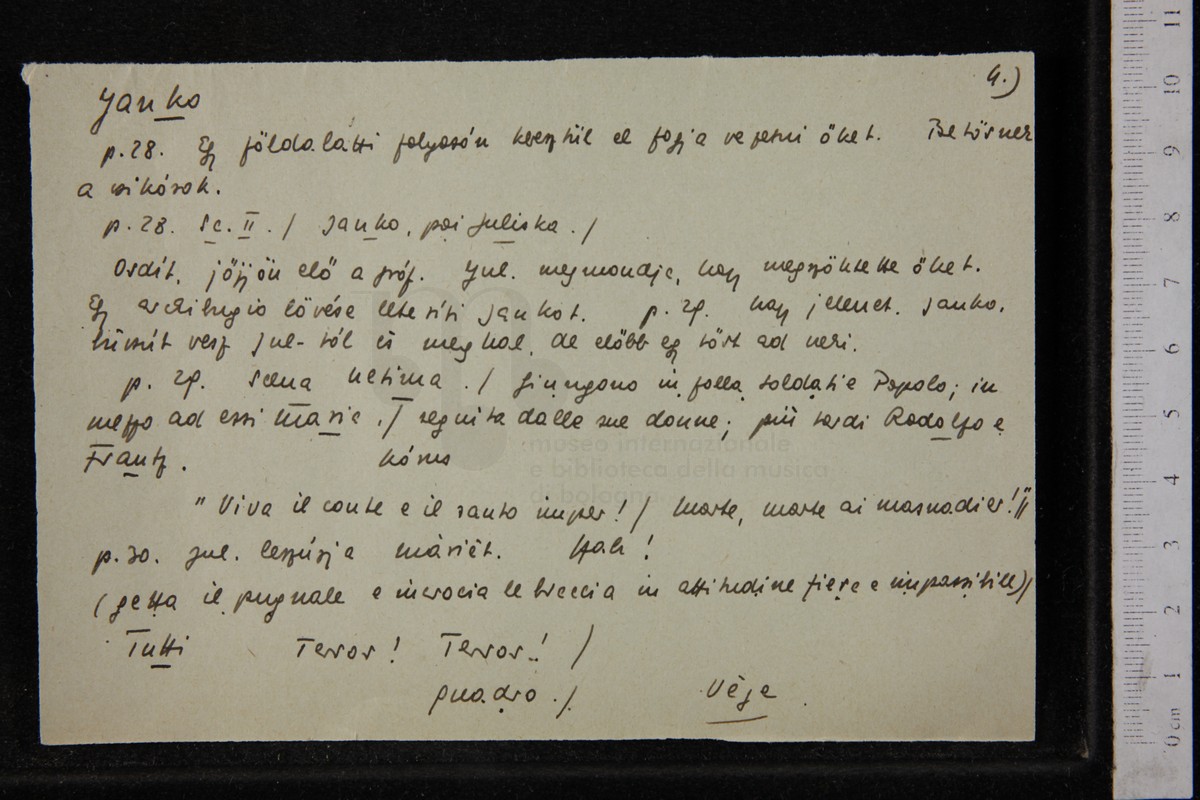 4.)
Janko
p. 28. Egy földalatti folyosón keresztül el fogja vezetni őket. Betörnek
a zsikórok.
p. 28. Sc. II. / Janko, poi Juliska. /
Ordít, jőjjön elő a gróf. Jul. megmondja, hogy megszöktette őket.
Egy archibugio lövése leteríti Jankot. p. 29. nagy jelenet. Janko,
búcsút vesz Jul-tól és meghal, de előbb egy tőrt ad neki.
p. 29. Scena Ultima. / Giungono in folla soldati e Popolo; in
mezzo ad essi Maria. / seguita dalle sue donne; più tardi Rodolfo e
Frantz. Kórus
"Viva il conte e il santo imper! / Morte, morte ai masnadier!"/
p. 30. Jul. leszúrja Máriát. Hah!
(getta il pugnale e incrocia le braccia in attitudine fiera e impassibile)/
Tutti Terror! Terror..! /
Quadro. /. Vége.
museo internazionale
e biblioteca della musica
di bologna
0 cm 1 2 3 4 5 6 7 8 9 10 11